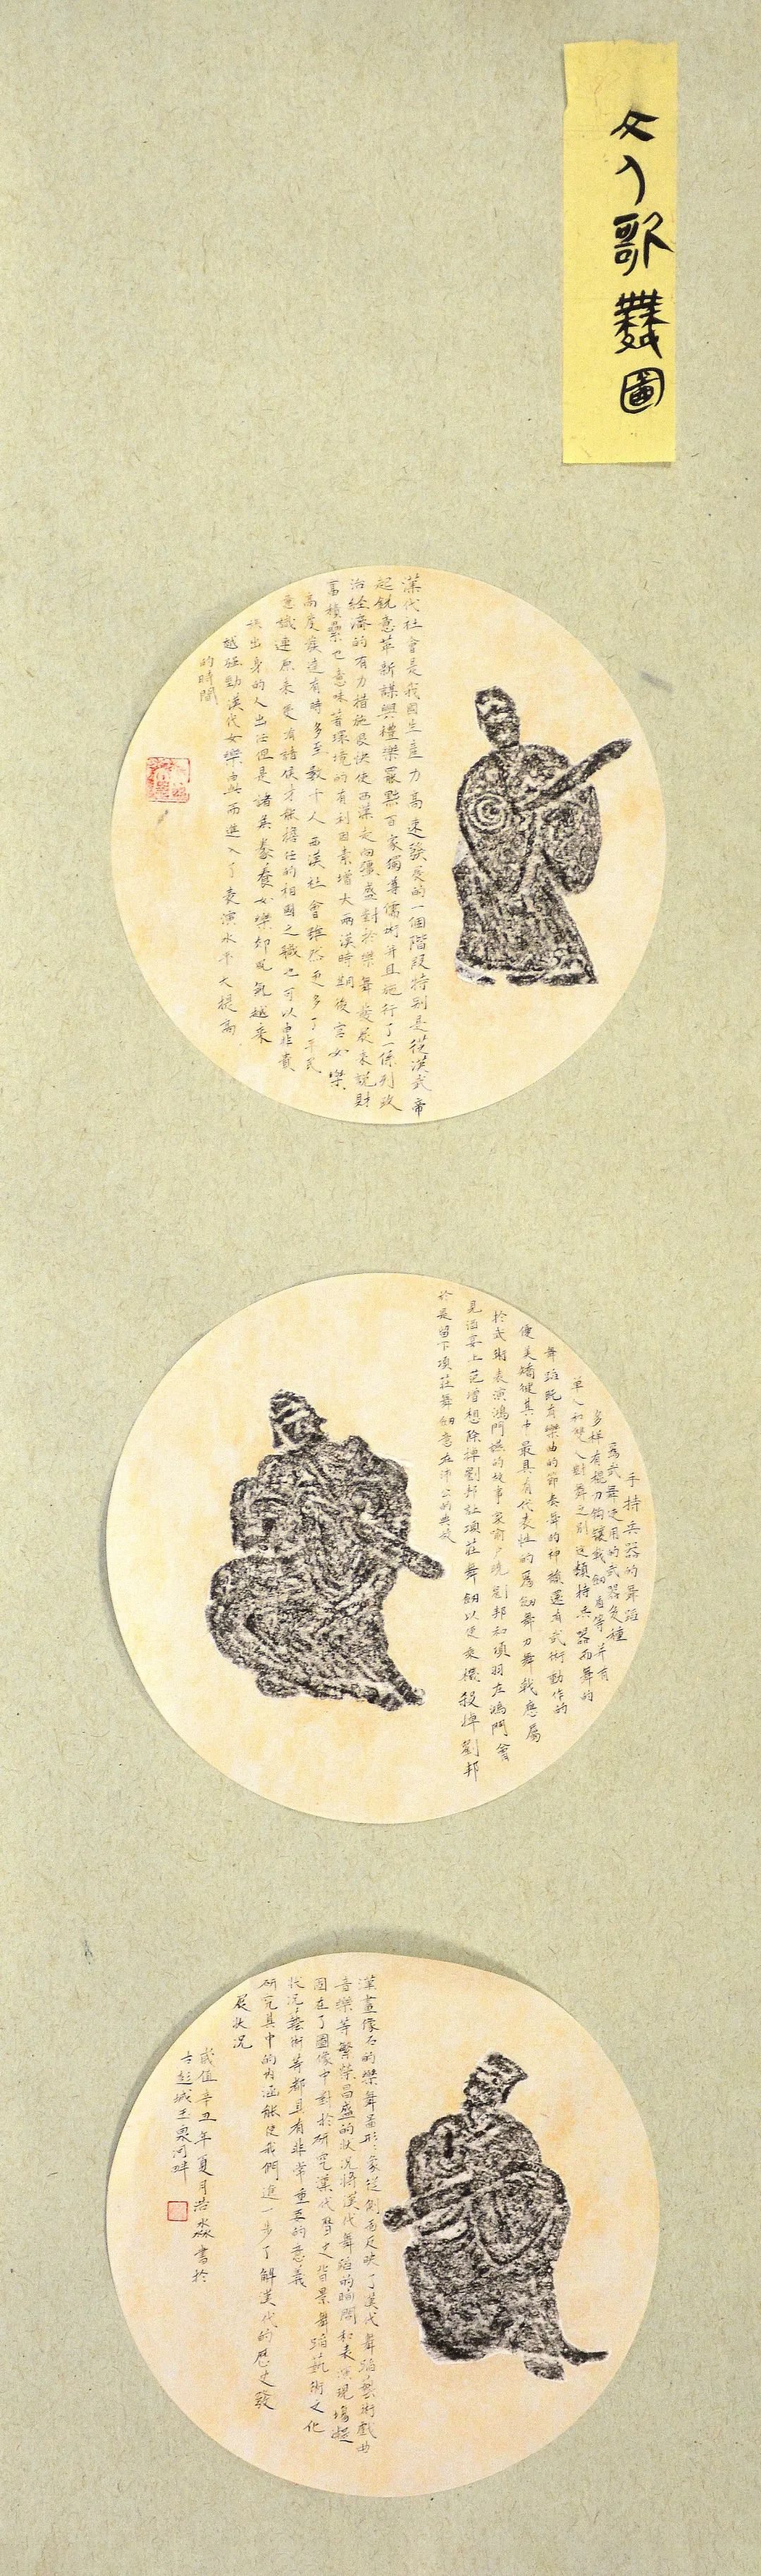 女人歌舞圖
漢代社會是我國生產力高速發展的一個階段特別是從漢武帝
起銳意革新謀興禮樂罷黜百家獨尊儒術并且施行了一係列政
治經濟的有力措施很快使西漢走向彊盛對於樂舞發展來說財
富積纍也意味着環境的有利因素增大兩漢時期後宮女樂
高度發達有時多至數十人西漢社會雖然更多了平民
意識連原來受有諸侯才能擔任的相國之職也可以由非貴
族出身的人出任但是諸吳養女樂却風氣越來
越强勁漢代女樂由興而進入了表演水平大提高
的時間
手持兵器的舞蹈
爲武舞使用的武器多種
多樣有棍刀鈎鑲戟劍盾等并有
單人和雙人對舞之别這類持兵器而舞的
舞蹈既有樂曲的節奏舞的神韻還有武術動作的
健美矯健其中最具有代表性的爲劍舞刀舞戟應屬
於武術表演鴻門宴的故事家喻户曉劉邦和項羽在鴻門會
見酒宴上范增想除掉劉邦讓項莊舞劍以便乘機殺掉劉邦
於是留下項莊舞劍意在沛公的典故
漢畫像石的樂舞圖形象從側面反映了漢代舞蹈藝術戲曲
音樂等繁榮昌盛的狀况將漢代舞蹈的瞬間和表演現場凝
固在了圖像中對於研究漢代歷史背景舞蹈藝術文化
狀况藝術等都具有非常重要的意義
研究其中的内涵能使我們進一步了解漢代的歷史發
展狀况
歲值辛丑年夏月浩淼書於
古彭城王泉河畔